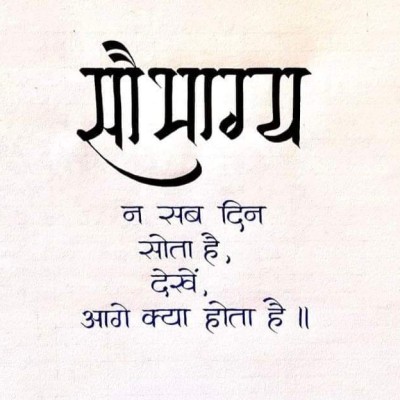 सौभाग्य
न सब दिन
सोता है,
देखें,
आगे क्या होता है॥